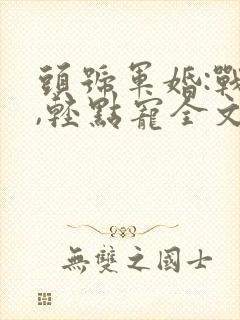 頭號軍婚:戰
,輕點寵全文
無雙之國士